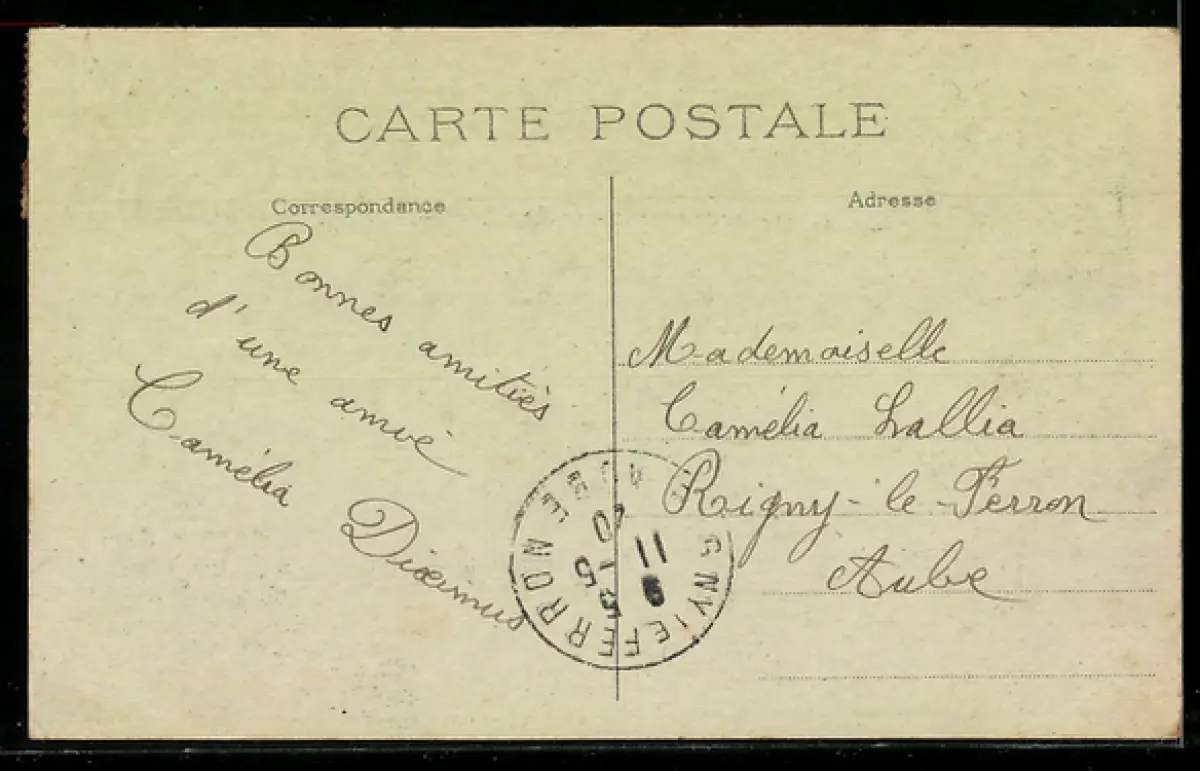 CARTE POSTALE
Correspondance
Adresse
Bonnes amitiés
d'une amie
Camélia Dixemus
Mademoiselle
Camélia Lallia
Rigny-le-Ferron
Aube
GNY LE FERRON AUBE